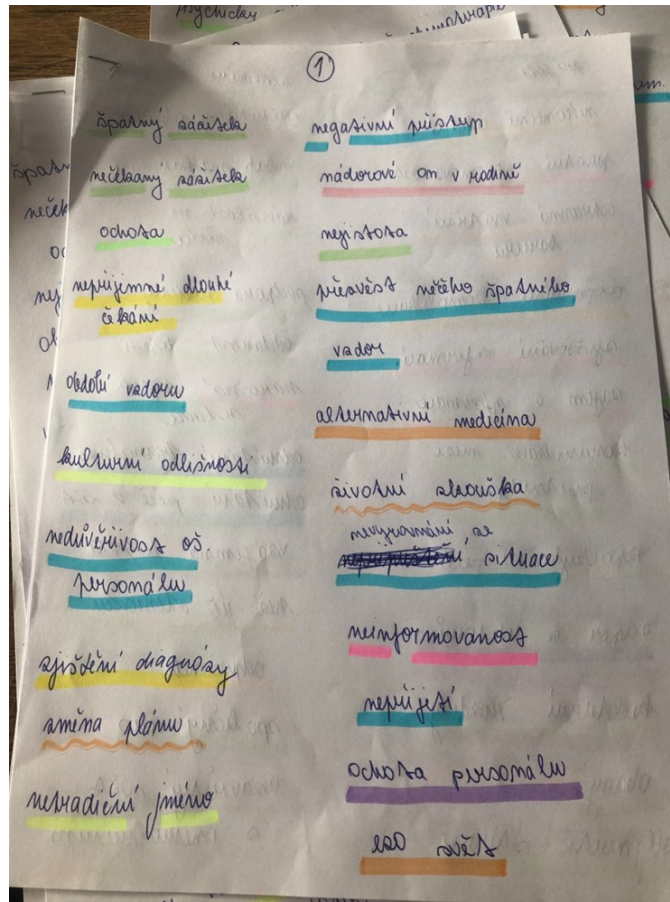 psychicky
1
špatný zážitek
nečekaný zážitek
ochota
nepříjemné dlouhé
čekání
období vzdoru
kulturní odlišnosti
nedůvěřivost oš
personálu
zjištění diagnózy
změna plánu
netradiční jméno
negativní přístup
nádorové on. v rodině
nejistota
převést něčeho špatného
vzdor
alternativní medicína
životní zkouška
nevyrovnání se
situace
neinformovanost
nepřijetí
ochota personálu
ezo svět